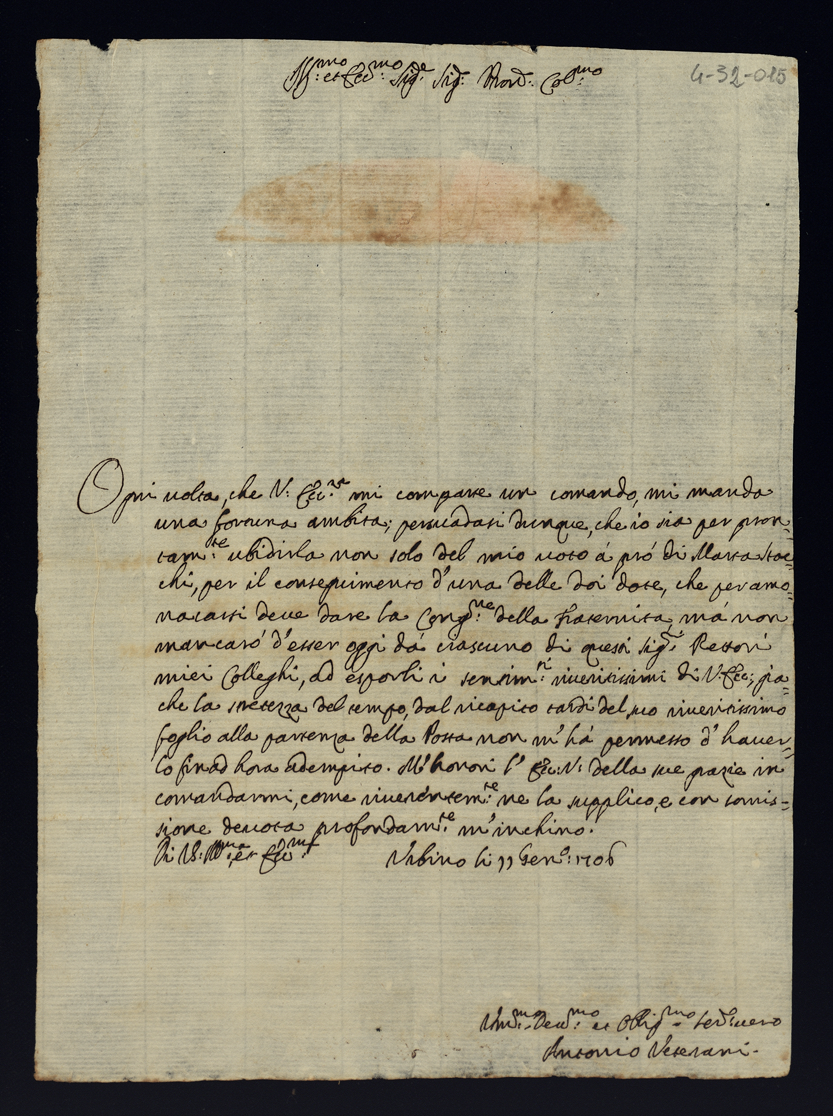 Ill:mo et Ecc:mo Sig:re Sig: Pron: Col:mo
4-32-015
Ogni volta, che V: Ecc:za mi comparte un comando, mi manda
una fortuna ambita; persuadasi dunque, che io sia per pron=
tam:te ubidirla non solo del mio voto à prò di Marta Stac=
chi, per il conseguimento d'una delle doi dote, che per amo=
nacarsi deve dare la Cong:ne della Fraternita, mà non
mancarò d'esser oggi dà ciascuno di questi Sig:ri Rettori
miei Colleghi, ad esporli i sentim:ti riveritissimi di V: Ecc:; gia
che la stretezza del tempo, dal ricapito tardi del suo riveritissimo
foglio alla partenza della Posta non m'hà permesso d'haver=
lo fin ad hora adempito. M'honori l'Ecc: V: della sue grazie in
comandarmi, come riverentem:te ne la supplico, e con somis=
sione devota profondam:te m'inchino.
Di V: Ill:ma, et Ecc:ma
Urbino li 11 Gen:o 1706
Um:mo Dev:mo et Oblig:mo Ser:e vero
Antonio Veterani